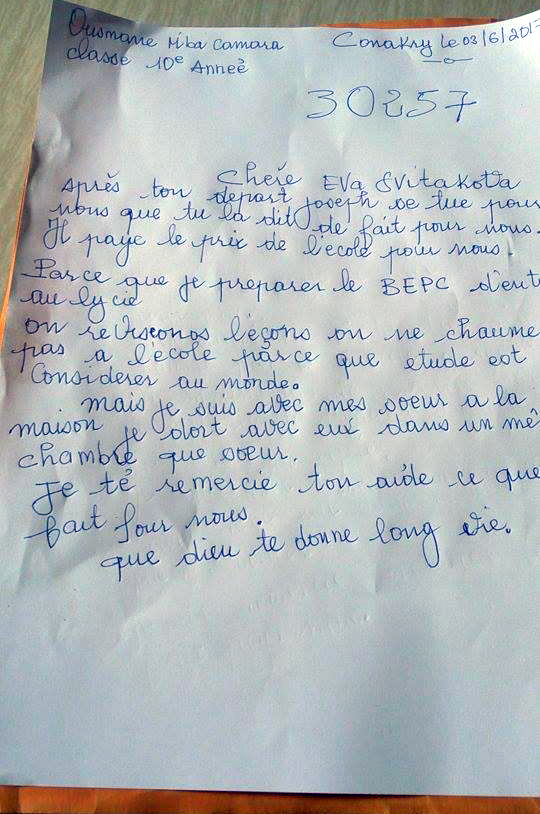 Ousmane M'ba Camara
Conakry le 03/6/2017
classe 10e Anneé
30257
Cheré Eva Svitakova
Après ton depart joseph se tue pour
nous que tu la dit de fait pour nous.
Il paye le prix de l'ecole pour nous.
Parce que je preparer le BEPC d'ent
au lycie
on revisconos leçons on ne chaume
pas a l'ecole parce que etude est
Considerer au monde.
mais je suis avec mes soeur a la
maison je dort avec eux dans un mê
chambre que soeur.
Je te remercie ton aide ce que
fait four nous.
que dieu te donne long vie.